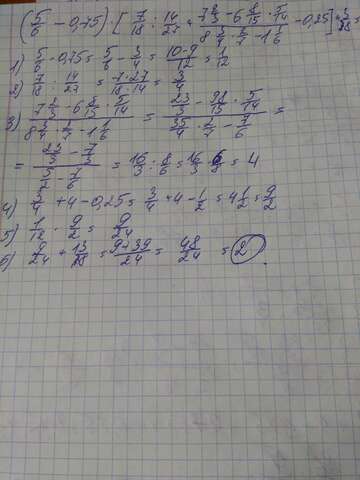 (5/6 - 0,75) · [7/18 : 14/27 + (7 2/3 - 6 8/15 · 5/14)/(8 3/4 · 2/7 - 1 1/6) - 0,25] + 13/8
1) 5/6 - 0,75 = 5/6 - 3/4 = (10-9)/12 = 1/12
2) 7/18 : 14/27 = (7·27)/(18·14) = 3/4
3) (7 2/3 - 6 8/15 · 5/14)/(8 3/4 · 2/7 - 1 1/6) = (23/3 - 98/15 · 5/14)/(35/4 · 2/7 - 7/6) =
= (23/3 - 7/3)/(5/2 - 7/6) = 16/3 : 8/6 = 16/3 · 6/8 = 4
4) 3/4 + 4 - 0,25 = 3/4 + 4 - 1/2 = 4 1/2 = 9/2
5) 1/12 · 9/2 = 9/24
6) 9/24 + 13/8 = (9+39)/24 = 48/24 = 2